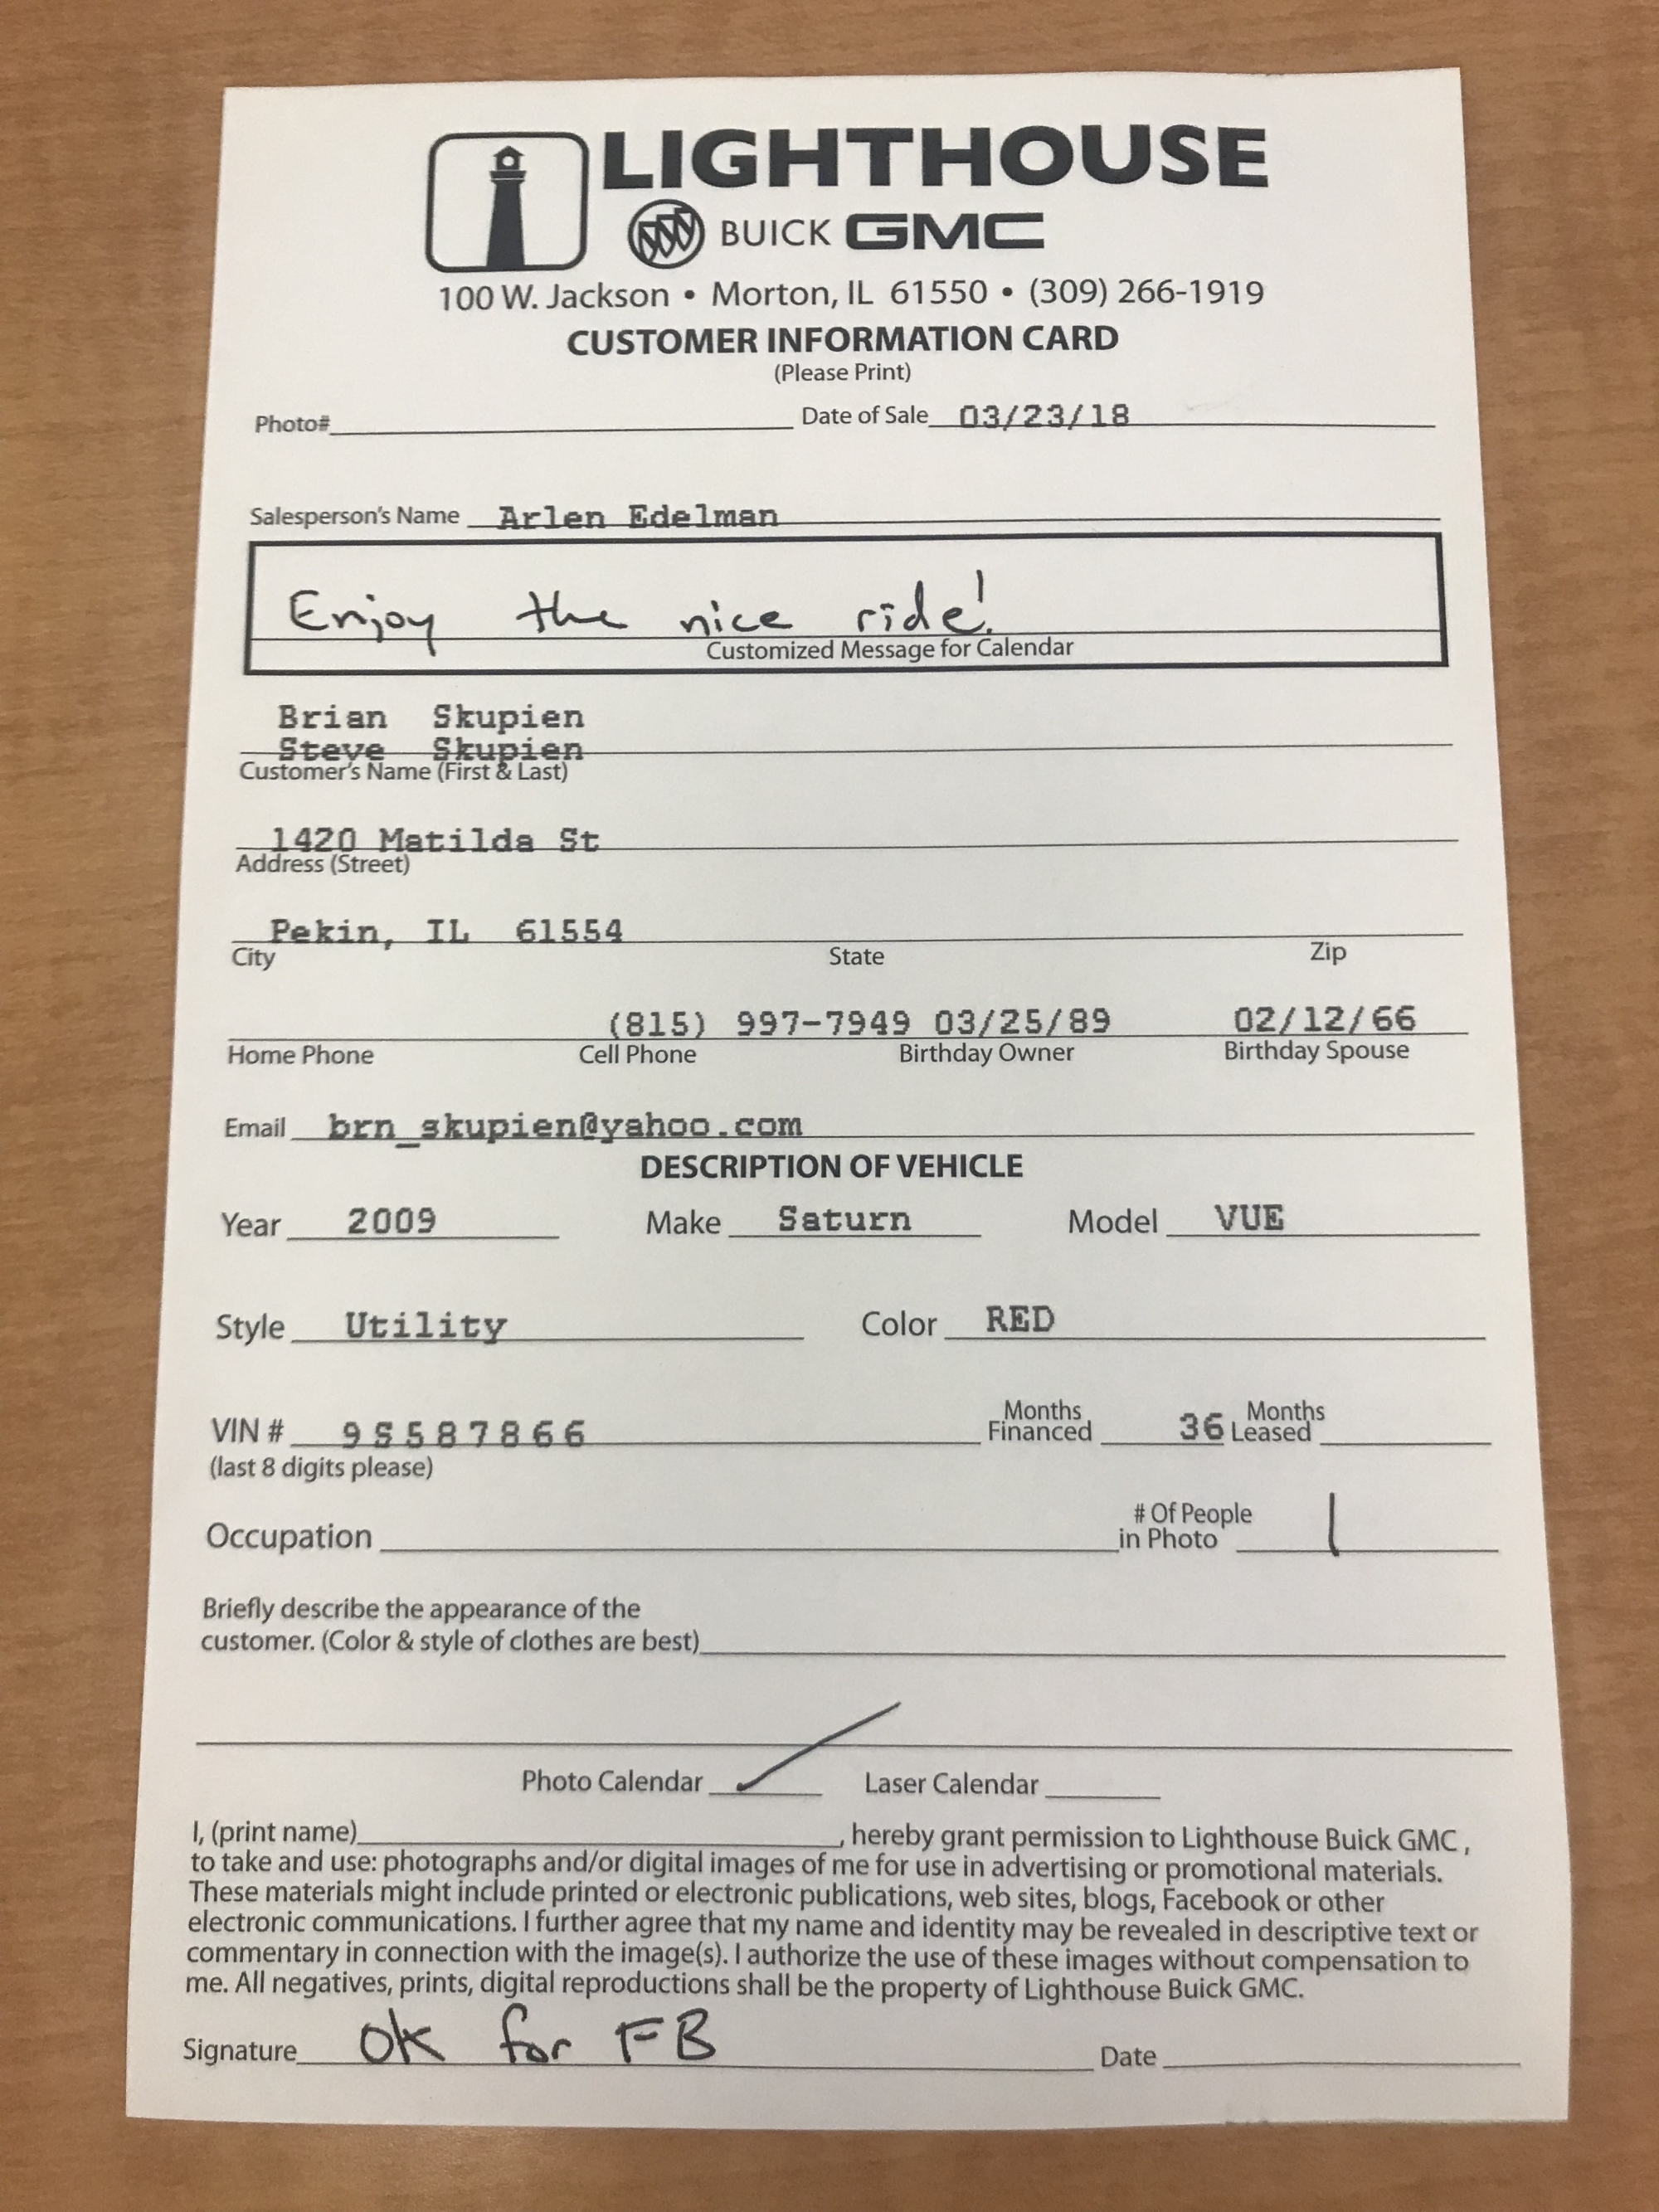 LIGHTHOUSE
BUICK GMC
100 W. Jackson • Morton, IL 61550 • (309) 266-1919
CUSTOMER INFORMATION CARD
(Please Print)
Photo# Date of Sale 03/23/18
Salesperson's Name Arlen Edelman
Enjoy the nice ride!
Customized Message for Calendar
Brian Skupien
Steve Skupien
Customer's Name (First & Last)
1420 Matilda St
Address (Street)
Pekin, IL 61554
City State Zip
(815) 997-7949 03/25/89 02/12/66
Home Phone Cell Phone Birthday Owner Birthday Spouse
Email brn_skupien@yahoo.com
DESCRIPTION OF VEHICLE
Year 2009 Make Saturn Model VUE
Style Utility Color RED
VIN # 9S587866 Months Financed 36 Months Leased
(last 8 digits please)
Occupation # Of People in Photo 1
Briefly describe the appearance of the
customer. (Color & style of clothes are best)
Photo Calendar ✓ Laser Calendar
I, (print name) , hereby grant permission to Lighthouse Buick GMC ,
to take and use: photographs and/or digital images of me for use in advertising or promotional materials.
These materials might include printed or electronic publications, web sites, blogs, Facebook or other
electronic communications. I further agree that my name and identity may be revealed in descriptive text or
commentary in connection with the image(s). I authorize the use of these images without compensation to
me. All negatives, prints, digital reproductions shall be the property of Lighthouse Buick GMC.
Signature OK for FB Date